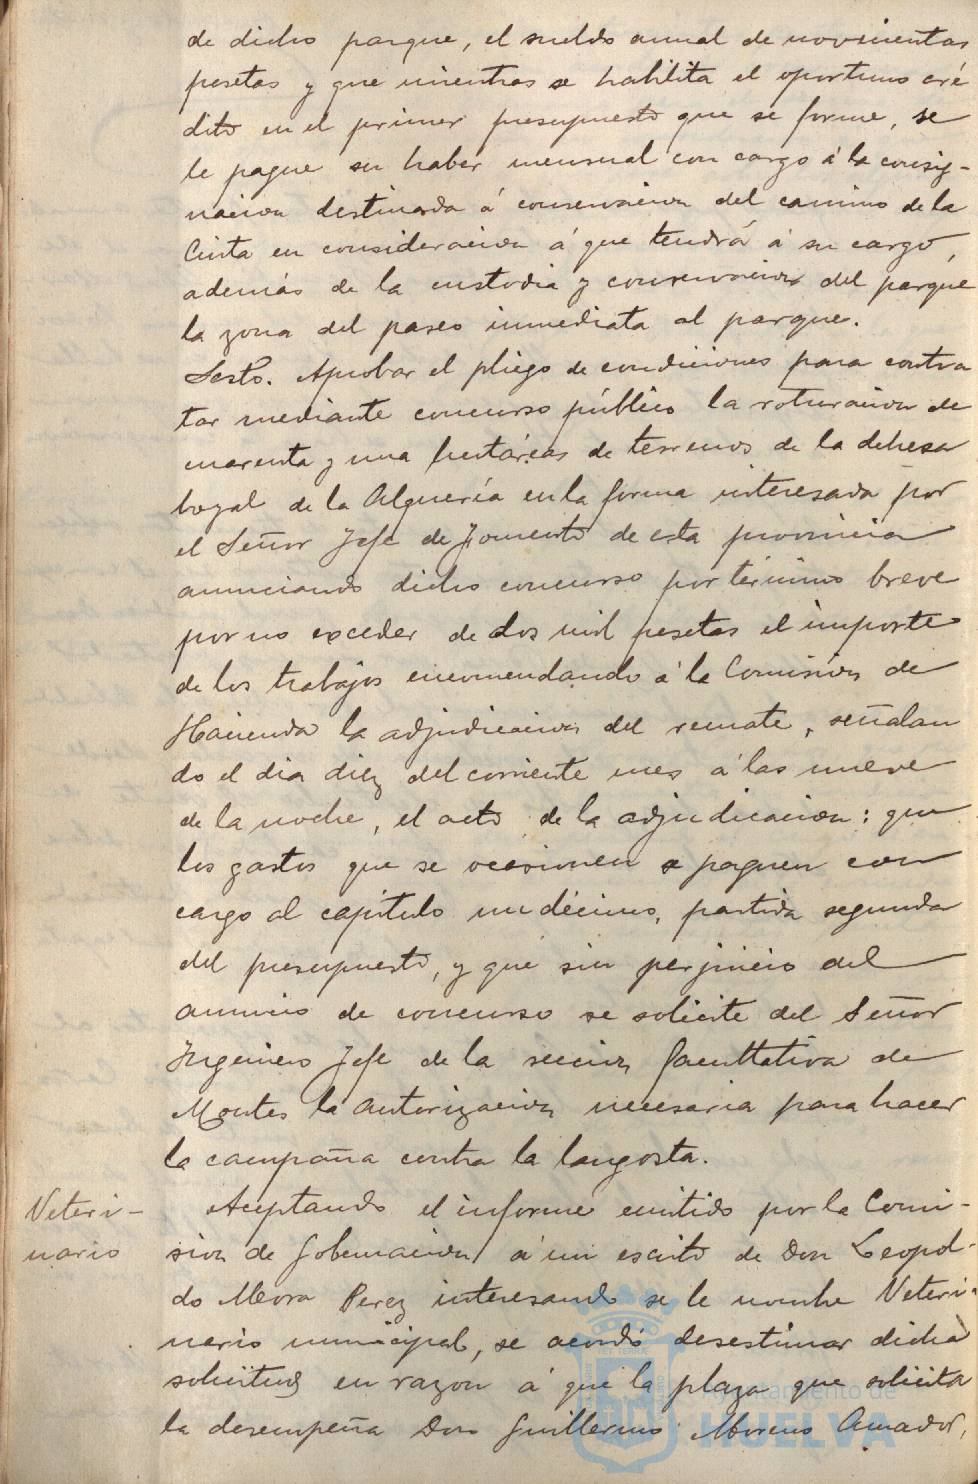 de dicho parque, el sueldo anual de novecientas
pesetas y que mientras se habilita el oportuno cré
dito en el primer presupuesto que se forme, se
le pague su haber mensual con cargo á la consig-
nacion destinada á conservacion del camino de la
Cinta en consideracion á que tendrá á su cargo,
además de la custodia y conservacion del parque
la zona del paseo inmediata al parque.
Sesto. Aprobar el pliego de condiciones para contra
tar mediante concurso público la roturacion de
cuarenta y una hectáreas de terrenos de la dehesa
boyal de la Alquería en la forma interesada por
el Señor Jefe de Fomento de esta provincia
anunciando dicho concurso por término breve
por no exceder de dos mil pesetas el importe
de los trabajos encomendando á la Comisión de
Hacienda la adjudicacion del remate, señalan
do el dia diez del corriente mes á las nueve
de la noche, el acto de la adjudicacion: que
los gastos que se ocasionen se paguen con
cargo al capítulo undécimo, partida segunda
del presupuesto, y que sin perjuicio del
anuncio de concurso se solicite del Señor
Ingeniero Jefe de la seccion facultativa de
Montes la autorizacion necesaria para hacer
la campaña contra la langosta.
Veteri-
nario
Aceptando el informe emitido por la Comi-
sion de Gobernacion á un escrito de Don Leopol-
do Mora Perez interesando se le nombre Veteri-
nario municipal, se acordó desestimar dicha
solicitud en razon á que la plaza que solicita
la desempeña Don Guillermo Moreno Amador,
Ayuntamiento de
HUELVA